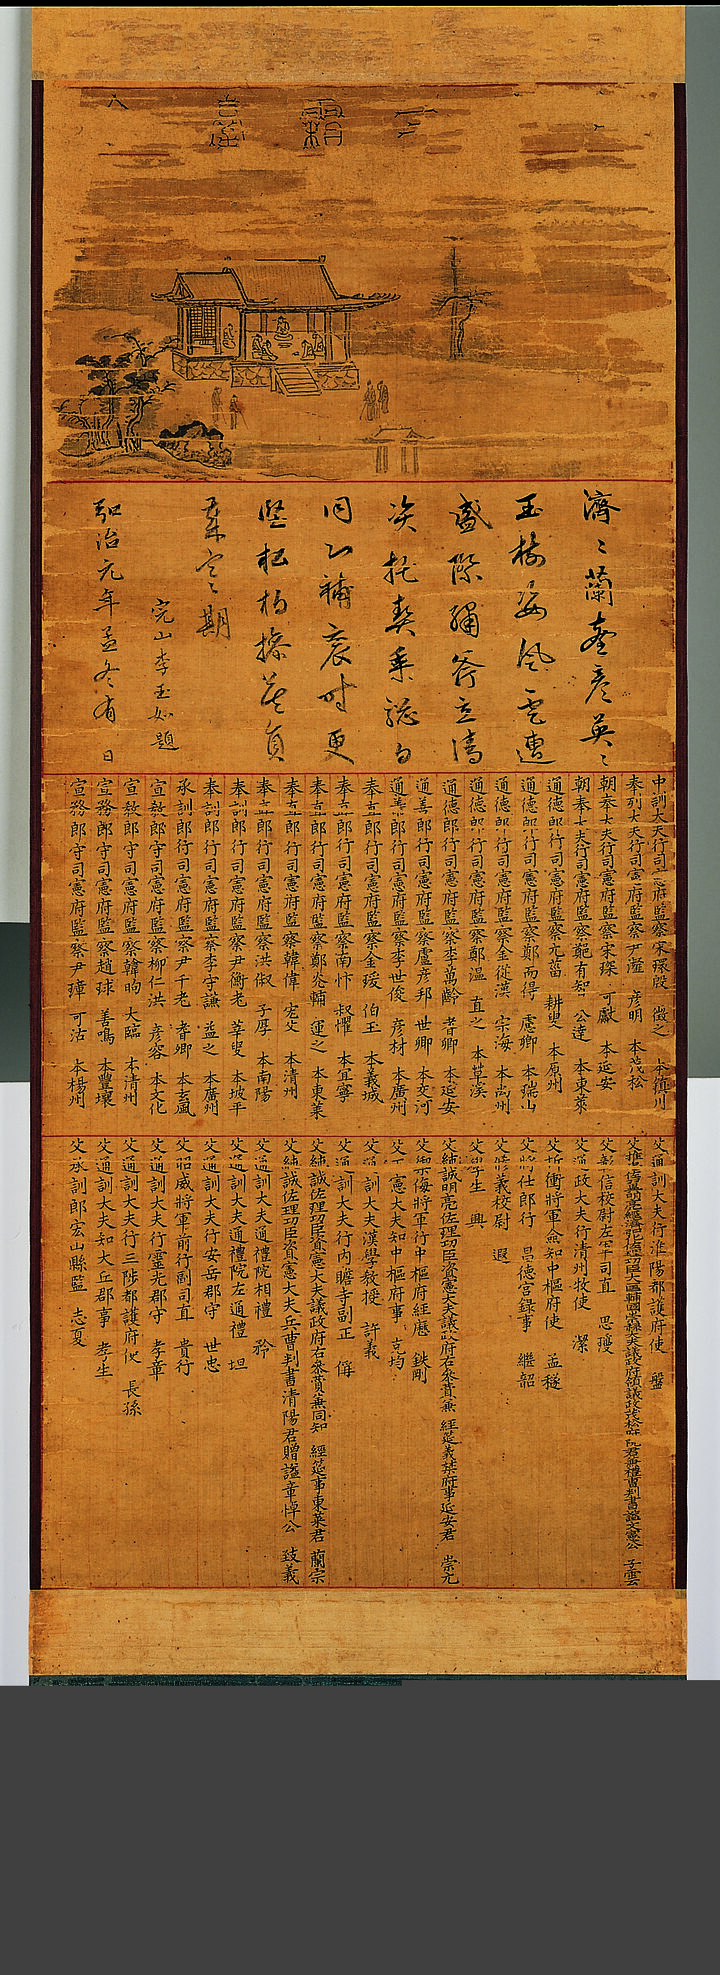 霜
濟〻蘭臺彦英〻
玉樹姿風雲遭
盛際繡斧立清
資托契乗驄日
同心補袞時更
堅松栢操莫負
歲寒期
完山李玉如題
弘治元年孟冬有日
中訓大夫行司憲府監察宋環殷 徵之 本鎮川
奉列大夫行司憲府監察尹 彦明 本茂松
朝奉大夫行司憲府監察宋琛 可獻 本延安
朝奉大夫行司憲府監察鄭有智 公達 本東萊
通德郎行司憲府監察元菑 耕叟 本原州
通德郎行司憲府監察鄭而得 慮卿 本瑞山
通德郎行司憲府監察金從漢 宗海 本禹州
通德郎行司憲府監察鄭溫 直之 本草溪
通德郎行司憲府監察李萬齡 耆卿 本延安
通善郎行司憲府監察盧彦邦 世卿 本交河
通善郎行司憲府監察李世俊 彦材 本廣州
奉直郎行司憲府監察金瑗 伯玉 本義城
奉直郎行司憲府監察南忭 叔懼 本宜寧
奉直郎行司憲府監察鄭允輔 運之 本東萊
奉直郎行司憲府監察韓偉 宏父 本清州
奉直郎行司憲府監察洪俶 子厚 本南陽
奉訓郎行司憲府監察尹衡老 莘叟 本坡平
奉訓郎行司憲府監察李守謙 益之 本廣州
承訓郎行司憲府監察尹千老 耆卿 本玄風
宣教郎守司憲府監察柳仁洪 彦容 本文化
宣教郎守司憲府監察韓昫 大臨 本清州
宣務郎守司憲府監察趙球 善鳴 本豐壤
宣務郎守司憲府監察尹璋 可沽 本楊州
父通訓大夫行淮陽都護府使 盤
父 議政府領議政茂松府院君兼禮曹判書謚文憲公 子雲
父彰信校尉左軍司直 思璦
父通政大夫行清州牧使 潔
父折衝將軍僉知中樞府使 孟穟
父將仕郎行 昌德宮録事 繼韶
父修義校尉 遐
父學生 興
父純誠明亮佐理功臣資憲大夫議政府右參賛兼 經筵義禁府事延安君 崇元
父禦侮將軍行中樞府經歷 鉄剛
父 憲大夫知中樞府事 克均
父通訓大夫漢學教授 許義
父通訓大夫行內贍寺副正 俌
父純誠佐理功臣資憲大夫議政府右參賛兼同知 經筵事東萊君 蘭宗
父純誠佐理功臣資憲大夫兵曹判書清陽君贈謚章悼公 致義
父通訓大夫通禮院相禮
父通訓大夫通禮院左通禮 坦
父通訓大夫行安岳郡守 世忠
父昭威將軍前行副司直 貴行
父通訓大夫行靈光郡守 孝章
父通訓大夫行三陟都護府使 長孫
父通訓大夫知大丘郡事 孝生
父承訓郎宏山縣監 志夏